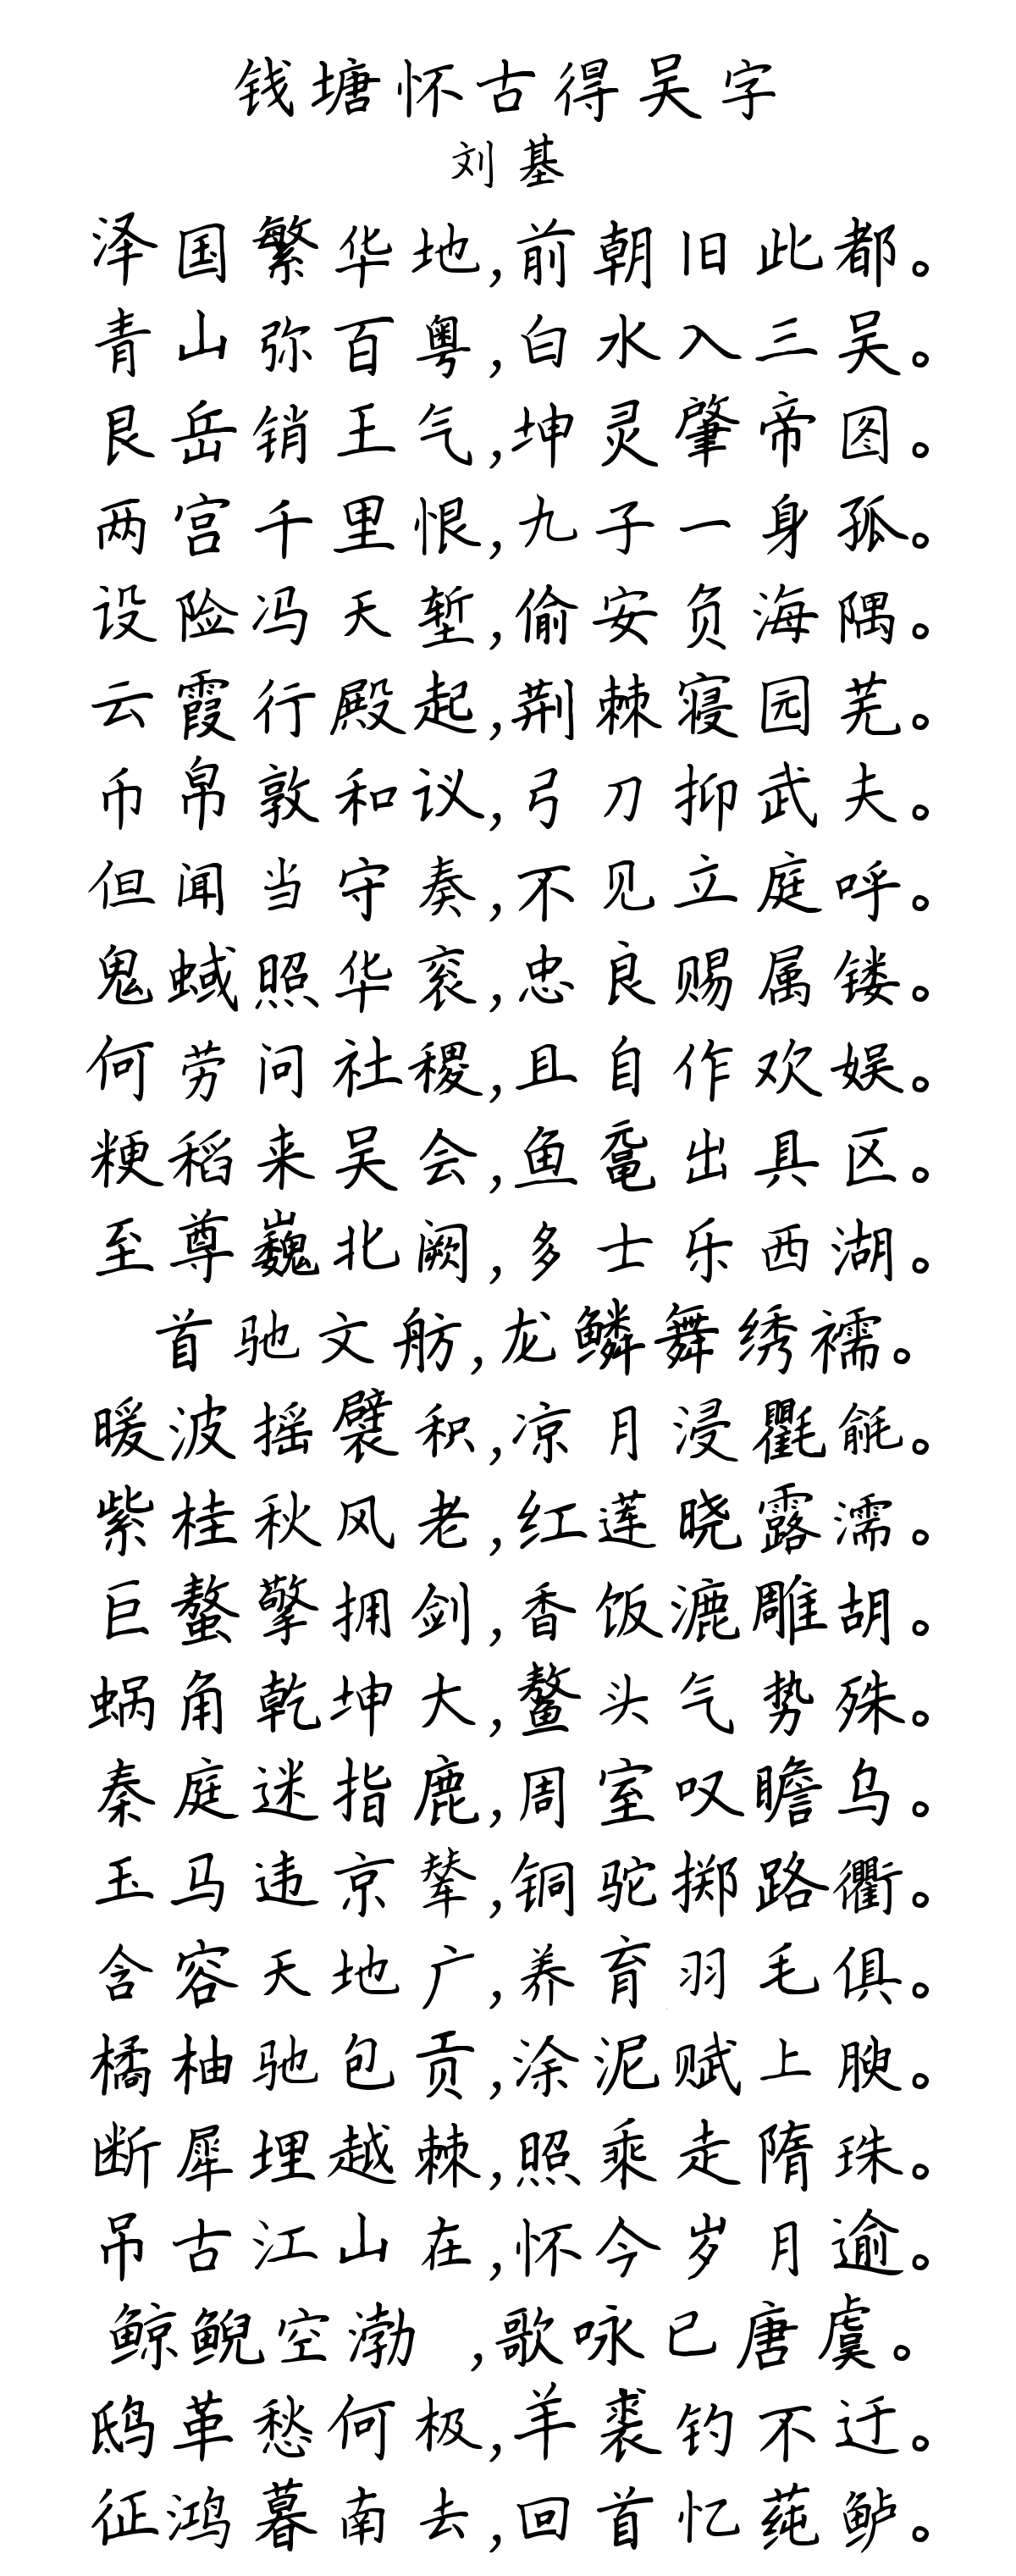 钱塘怀古得吴字
刘基
泽国繁华地,前朝旧此都。
青山弥百粤,白水入三吴。
艮岳销王气,坤灵肇帝图。
两宫千里恨,九子一身孤。
设险冯天堑,偷安负海隅。
云霞行殿起,荆棘寝园芜。
币帛敦和议,弓刀抑武夫。
但闻当守奏,不见立庭呼。
鬼蜮照华衮,忠良赐属镂。
何劳问社稷,且自作欢娱。
粳稻来吴会,鱼鼋出具区。
至尊巍北阙,多士乐西湖。
首驰文舫,龙鳞舞绣襦。
暖波摇襞积,凉月浸氍毹。
紫桂秋风老,红莲晓露濡。
巨螯擎拥剑,香饭漉雕胡。
蜗角乾坤大,鳌头气势殊。
秦庭迷指鹿,周室叹瞻乌。
玉马违京辇,铜驼掷路衢。
含容天地广,养育羽毛俱。
橘柚驰包贡,涂泥赋上腴。
断犀埋越棘,照乘走隋珠。
吊古江山在,怀今岁月逾。
鲸鲵空渤 ,歌咏已唐虞。
鸱革愁何极,羊裘钓不迂。
征鸿暮南去,回首忆莼鲈。